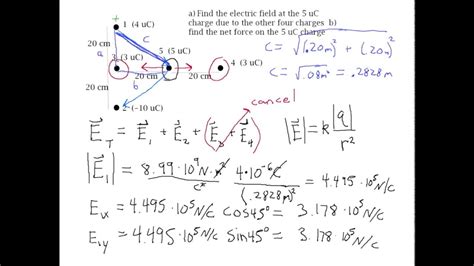 a) Find the electric field at the 5 uC
charge due to the other four charges b)
find the net force on the 5 uC charge
1 (4 uC)
20 cm
a
c
5 (5 uC)
3 (3 uC)
4 (3 uC)
20 cm
20 cm
20 cm
b
2 (-10 uC)
c = √(.20m)² + (.20m)²
c = √.08m² = .2828m
cancel
E⃗_T = E⃗_1 + E⃗_2 + (E⃗_3 + E⃗_4)
|E⃗| = k|q|/r²
|E⃗_1| = 8.99·10⁹ N·m²/C² 4·10⁻⁶C/(.2828m)² = 4.495·10⁵ N/C
E_1x = 4.495·10⁵ N/C cos45° = 3.178·10⁵ N/C
E_1y = 4.495·10⁵ N/C sin45° = 3.178·10⁵ N/C